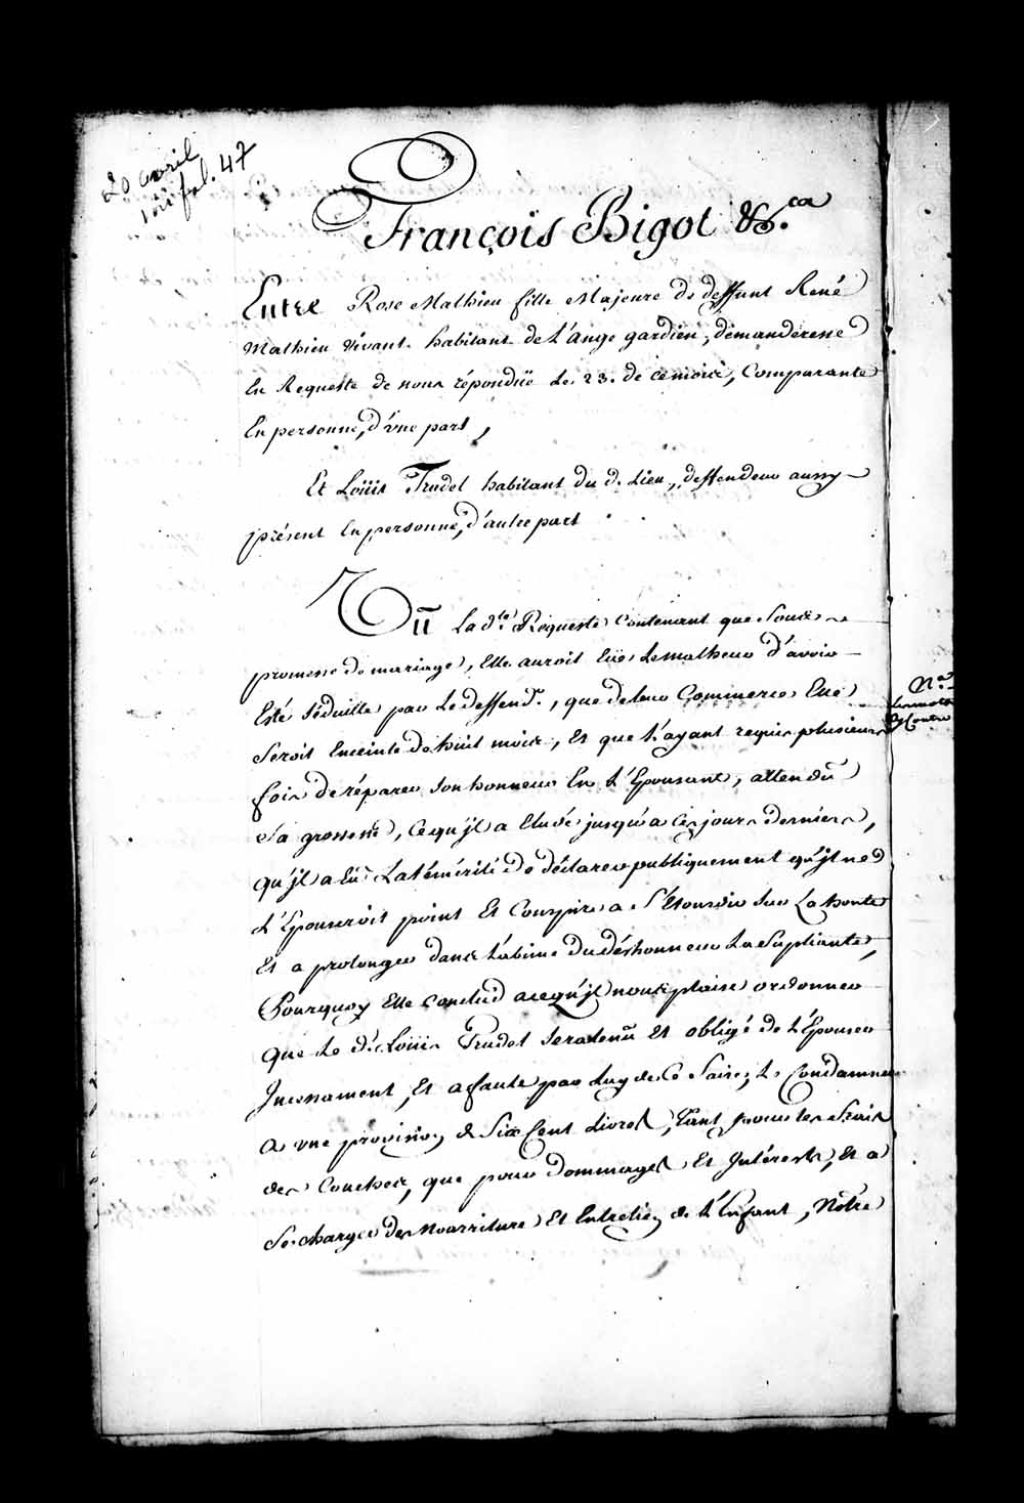 20 avril
fol. 47
François Bigot &.ca
Entre Rose Mathieu fille Majeure de deffunt René
Mathieu vivant habitant de L'ange gardien, demanderesse
En Requeste de nous répondüe Le 23. de ce mois, Comparante
En personne, d'vne part,
Et Loüis Trudel habitant du d. Lieu, deffendeur aussy
présent En personne, d'autre part
Vû La d.te Requeste Contenant que Sous
promesse de mariage, Elle auroit Eüe Le malheur d'avoir
Esté séduitte par Le deffend.r, que de leur Commerce Elle
Seroit Enceinte de huit mois, Et que L'ayant requis plusieurs
fois de réparer son honneur En L'Epousant, attendu
Sa grossesse, Ce qu'jl a Eludé jusqu'a Ces jours derniers,
qu'jl a Eü La témérité de déclarer publiquement qu'jl ne
L'Epouseroit point Et Conspire a S'Etourdir sur La honte
Et a prolonger dans L'abime du déshonneur La Supliante,
Pourquoy Elle conclud a ce qu'jl nous plaise ordonner
que Le d. Loüis Trudel sera tenu Et obligé de L'Epouser
Jncessament, Et a faute par Luy de Ce faire, Le Condamner
a vne provision de Six Cent Livres, Tant pour les frais
des Couches, que pour dommages Et Jntérests, Et a
Se charger des Nourriture Et Entretien de L'Enfant, Nôtre
Na.